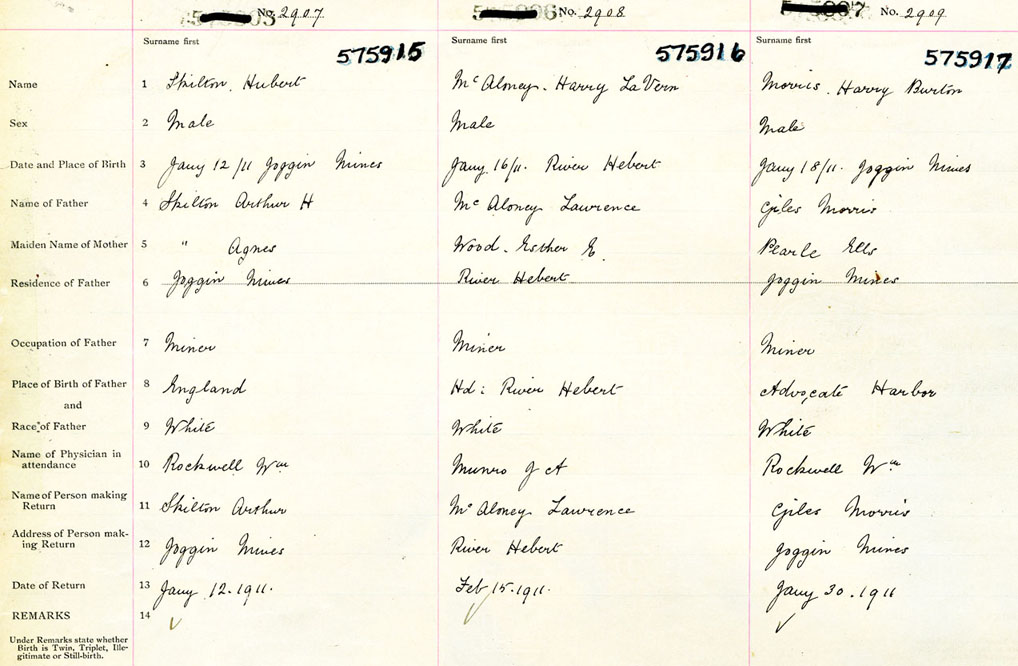 No. 2907 No. 2908 No. 2909
Surname first Surname first Surname first
575915 575916 575917
Name 1 Skilton, Hubert McAloney. Harry LaVern Morris. Harry Burton
Sex 2 Male Male Male
Date and Place of Birth 3 Jany 12/11 Joggin Mines Jany 16/11. River Hebert Jany 18/11. Joggin Mines
Name of Father 4 Skilton Arthur H McAloney Lawrence Giles Morris
Maiden Name of Mother 5 " Agnes Wood. Esther E. Pearle Ells
Residence of Father 6 Joggin Mines River Hebert Joggin Mines
Occupation of Father 7 Miner Miner Miner
Place of Birth of Father 8 England Hd: River Hebert Advocate Harbor
and
Race of Father 9 White White White
Name of Physician in
attendance 10 Rockwell Wm Munro J A Rockwell Wm
Name of Person making
Return 11 Skilton Arthur McAloney Lawrence Giles Morris
Address of Person mak-
ing Return 12 Joggin Mines River Hebert Joggin Mines
Date of Return 13 Jany 12.1911. Feb 15.1911. Jany 30.1911
REMARKS 14
Under Remarks state whether
Birth is Twin, Triplet, Ille-
gitimate or Still-birth.